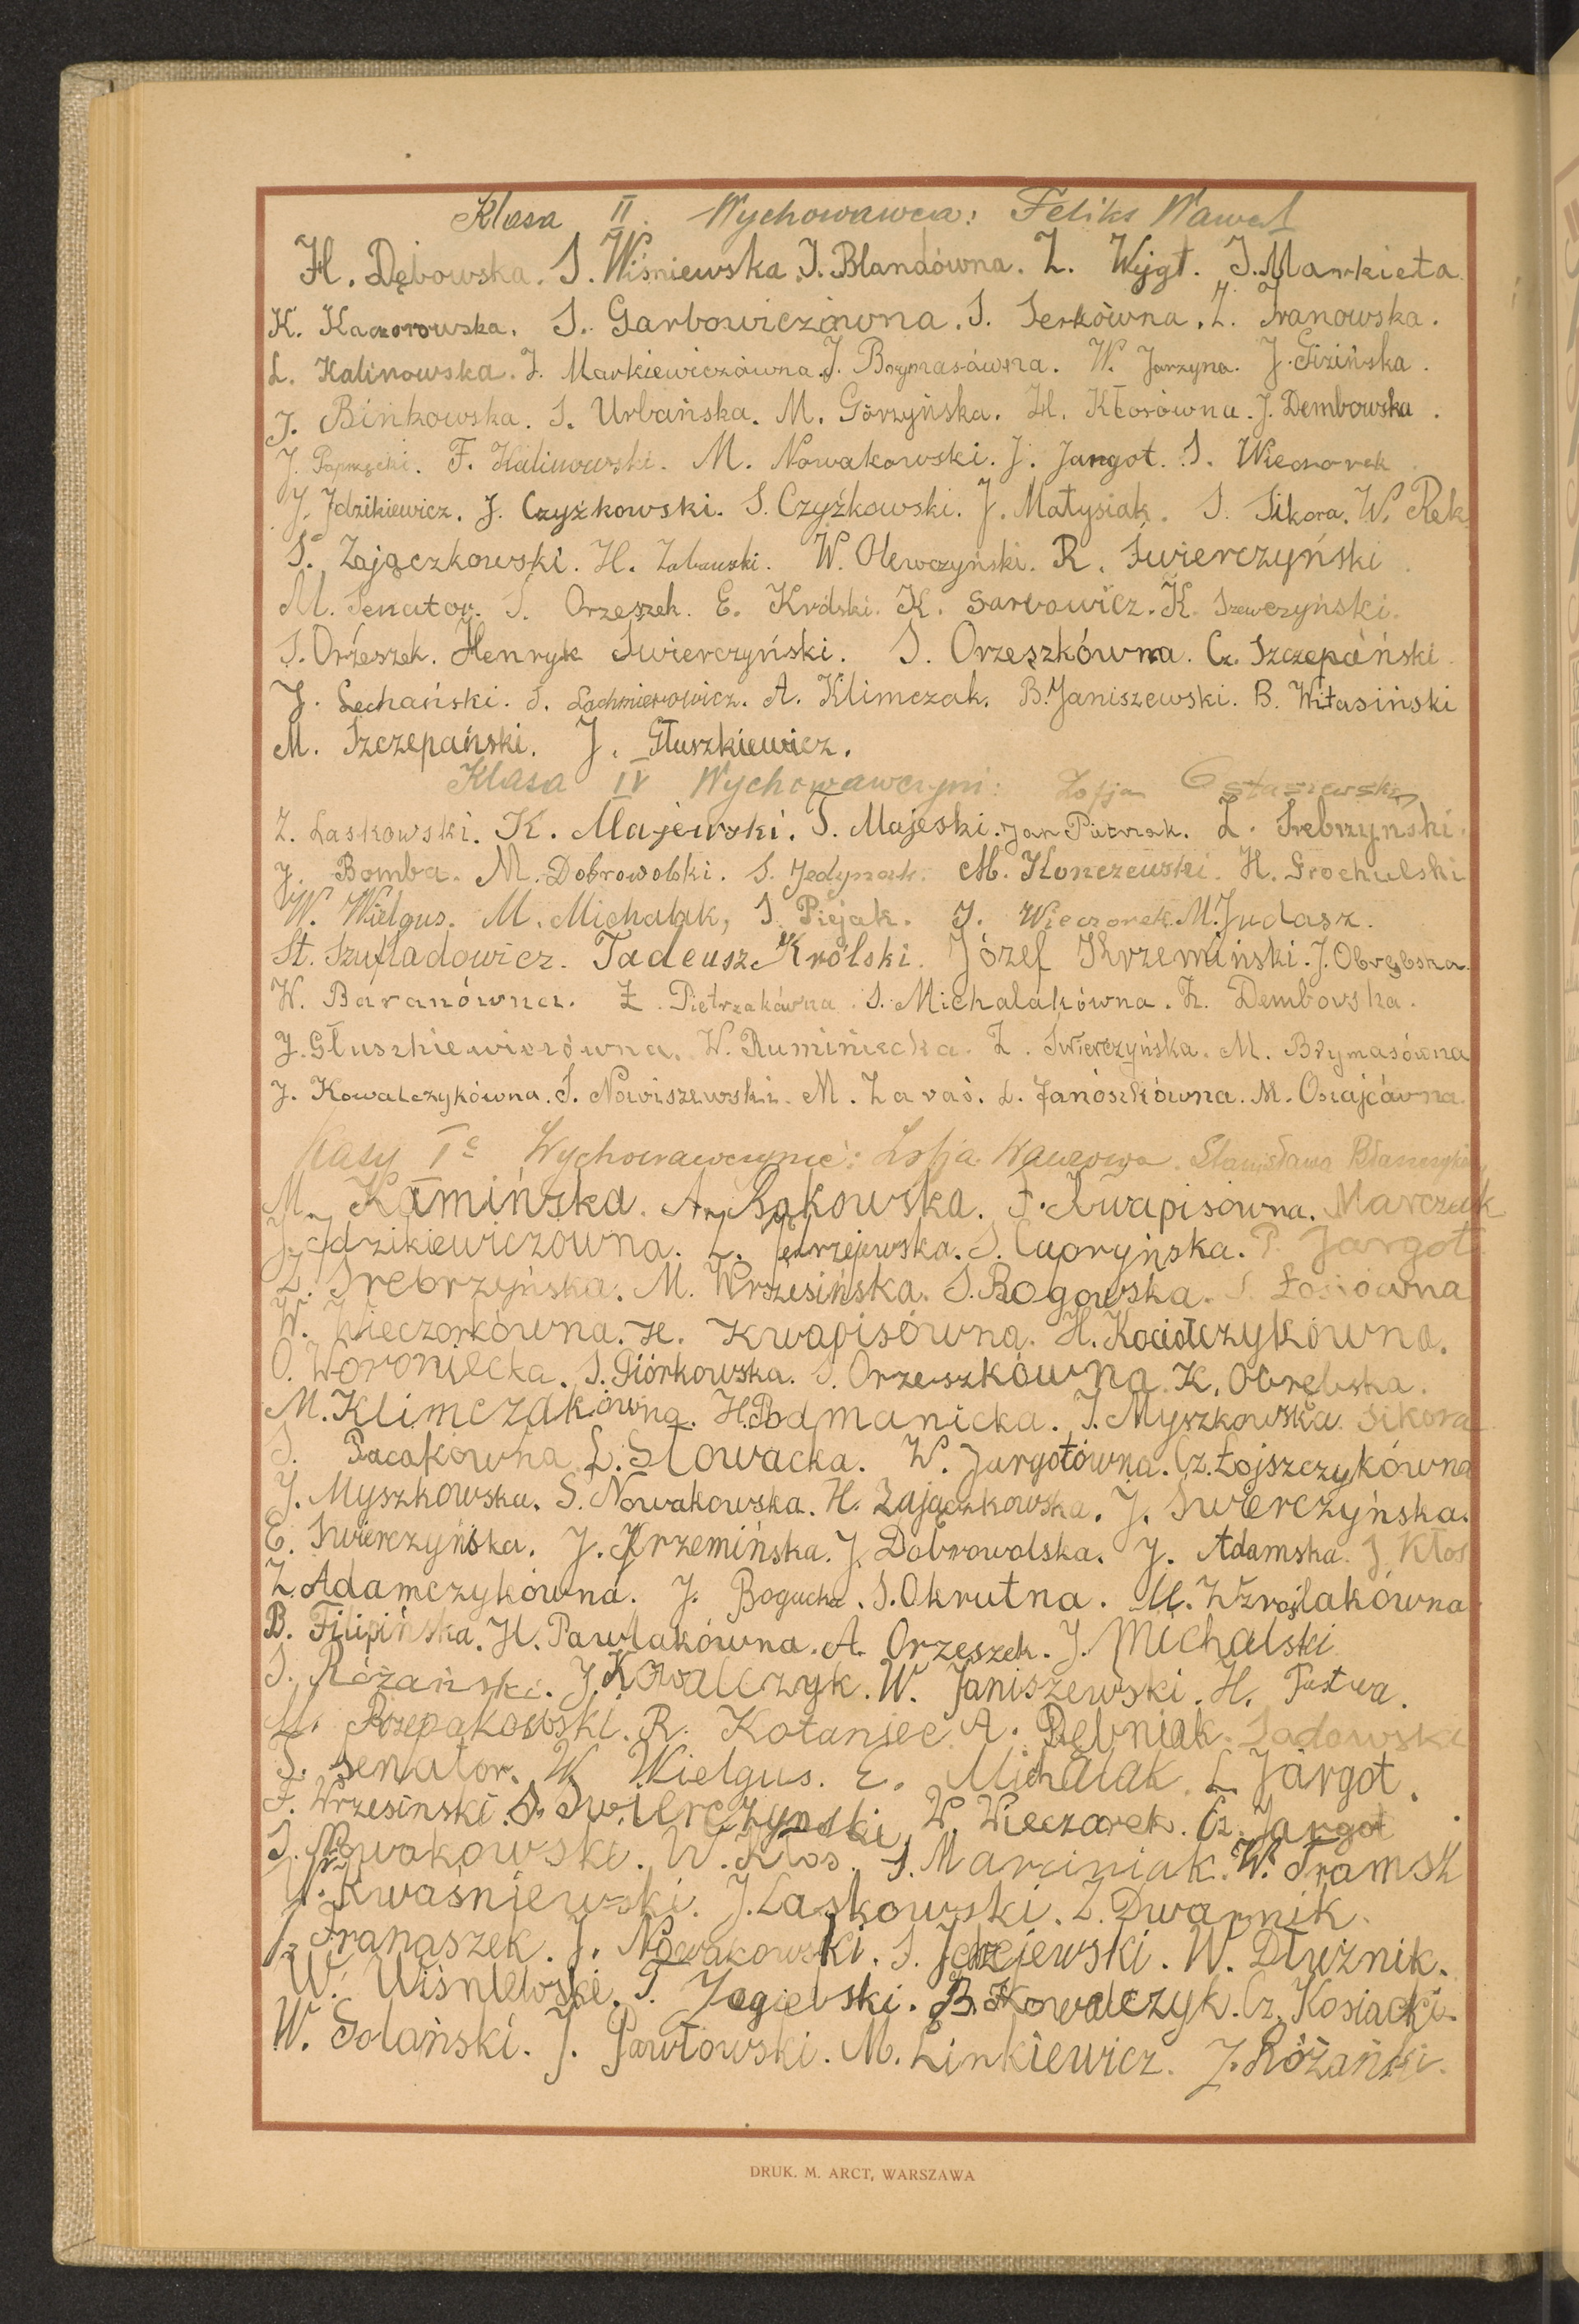 Klasa II. Wychowawca: Feliks Wawel
H. Dębowska. S. Wiśniewska. J. Blandówna. Z. Wejgt. J. Markieta
K. Kaczorowska. S. Garbowiczówna. S. Serkówna. Z. Iranowska.
L. Kalinowska. J. Markiewiczówna. J. Brymasówna. W. Jarzyna. J. Gizińska.
J. Binkowska. S. Urbańska. M. Górzyńska. H. Kłosówna. J. Dembowska.
J. F. Kalinowski. M. Nowakowski. J. Jangot. S. Wieczorek
J. Jdzikiewicz. J. Czyżkowski. S. Czyżkowski. J. Matysiak. S. Sikora. W. Rek
S. Zajączkowski. H. W. Olewczyński. R. Świerczyński.
M. Senator. S. Orzeszek. E. Królski. K. Sarbowicz. K. Szewczyński.
S. Orzeszek. Henryk Świerczyński. S. Orzeszkówna. Cz. Szczepański.
J. Lechański. S. Lachmierowicz. A. Klimczak. B. Janiszewski. B. Witasiński
M. Szczepański. J. Głuszkiewicz.
Klasa IV Wychowawczyni: Zofja Ostaszewska
Z. Laskowski. K. Majewski. T. Majeski. Jan Pietrzak. Z. Srebrzynski.
J. Bomba. M. Dobrowolski. S. Jedynak. M. Konczewski. H. Grochulski
W. Wielgus. M. Michalak, S. Piejak. J. Wieczorek. M. Judasz.
St. Szufladowicz. Tadeusz Królski. Józef Krzemiński. J. Obrębska.
W. Baranówna. Z. Pietrzakówna. S. Michalakówna. Z. Dembowska.
J. Głuszkiewiczówna. W. Rumińiecka. Z. Świerczyńska. M. Brymasówna
J. Kowalczykówna. S. Nowiszewski. M. Zaraś. L. Janoszkówna. M. Osiajcówna.
Klasy Ie Wychowawczynie: Zofja Wawrowa. Stanisława
M. Kamińska. A. Bąkowska. F. Kwapisówna. Marczak
J. Jdzikiewiczówna. Z. Jędrzejewska. S. Cupryńska. P. Jargot
Z. Srebrzyńska. M. Wrzesińska. S. Rogowska. S. Łosiówna
W. Wieczorkówna. H. Kwapisówna. H. Kociołczykówna.
O. Woroniecka. S. Giórkowska. S. Orzeszkówna. K. Obrębska.
M. Klimczakówna. H. Podmanicka. J. Myszkowska. Sikora
S. Pacakówna. L. Słowacka. W. Jurgotówna. Cz. Łojszczykówna
J. Myszkowska. S. Nowakowska. H. Zajączkowska. J. Świerczyńska.
E. Świerczyńska. J. Krzemińska. J. Dobrowolska. J. Adamska. J. Kłos
Z. Adamczykówna. J. Bogucka. S. Okrutna. M.
B. Filipińska. H. Pawlakówna. A. Orzeszek. J. Michalski
S. Różański. J. Kowalczyk. W. Janiszewski. H. Pastwa.
Z. Rzepakowski. R. Kotaniec. A. Dębniak. Sadowski
S. Senator. W. Wielgus. E. Michalak. L. Jargot.
F. Wrzesinski. S. Świerczynski. W. Wieczorek. Cz. Jargot
S. Nowakowski. W. Kłos. S. Marciniak. W. Gramsz
Kwaśniewski. J. Laskowski. Z. Dwarnik.
J. Franaszek. J. Nowakowski. S. W. Dłużnik.
W. Wiśniewski. T. Jagielski. B. Kowalczyk. Cz. Kosiacki.
W. Golański. J. Pawłowski. M. Linkiewicz. J. Różański.
DRUK. M. ARCT, WARSZAWA